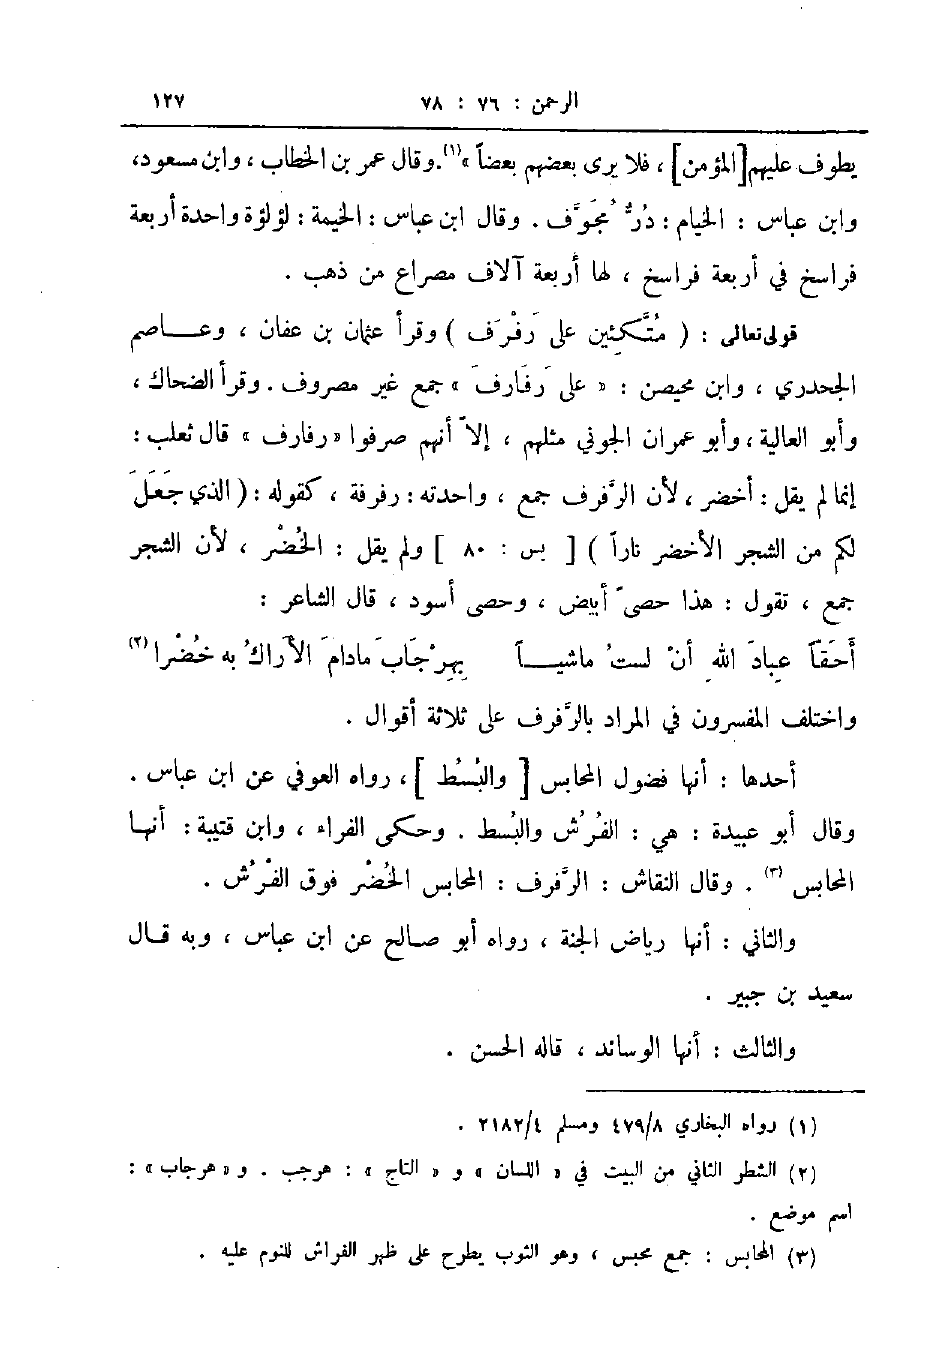 الرحمن : ٧٦ : ٧٨ ١٢٧
يطوف عليهم [المؤمن] ، فلا يرى بعضهم بعضاً »(١). وقال عمر بن الخطاب ، وابن مسعود،
وابن عباس : الخيام : دُرٌّ مُجَوَّف . وقال ابن عباس : الخيمة : لؤلؤة واحدة أربعة
فراسخ في أربعة فراسخ ، لها أربعة آلاف مصراع من ذهب .
قوله تعالى : ( مُتَّكِئين على رَفْرَفٍ ) وقرأ عثمان بن عفان ، وعاصم
الجحدري ، وابن محيصن : « على رَفَارفَ » جمع غير مصروف . وقرأ الضحاك ،
وأبو العالية ، وأبو عمران الجوني مثلهم ، إلاّ أنهم صرفوا « رفارف » قال ثعلب :
إنما لم يقل : أخضر ، لأن الرَّفرف جمع ، واحدته : رفرفة ، كقوله : ( الذي جَعَلَ
لكم من الشجر الأخضر ناراً ) [ يس : ٨٠ ] ولم يقل : الخُضْر ، لأن الشجر
جمع ، تقول : هذا حصىً أبيض ، وحصى أسود ، قال الشاعر :
أَحَقّاً عِبادَ اللهِ أنْ لستُ ماشياً بِهِرْجَابَ مادامَ الأَراكُ به خُضْرا(٢)
واختلف المفسرون في المراد بالرَّفرف على ثلاثة أقوال .
أحدها : أنها فضول المحابس [ والبُسُط ] ، رواه العوفي عن ابن عباس .
وقال أبو عبيدة : هي : الفُرُش والبُسط . وحكى الفراء ، وابن قتيبة : أنها
المحابس (٣) . وقال النقاش : الرَّفرف : المحابس الخُضْر فوق الفُرُش .
والثاني : أنها رياض الجنة ، رواه أبو صالح عن ابن عباس ، وبه قال
سعيد بن جبير .
والثالث : أنها الوسائد ، قاله الحسن .
(١) رواه البخاري ٤٧٩/٨ ومسلم ٢١٨٢/٤ .
(٢) الشطر الثاني من البيت في « اللسان » و « التاج » : هرجب . و « هرجاب » :
اسم موضع .
(٣) المحابس : جمع محبس ، وهو الثوب يطرح على ظهر الفراش للنوم عليه .